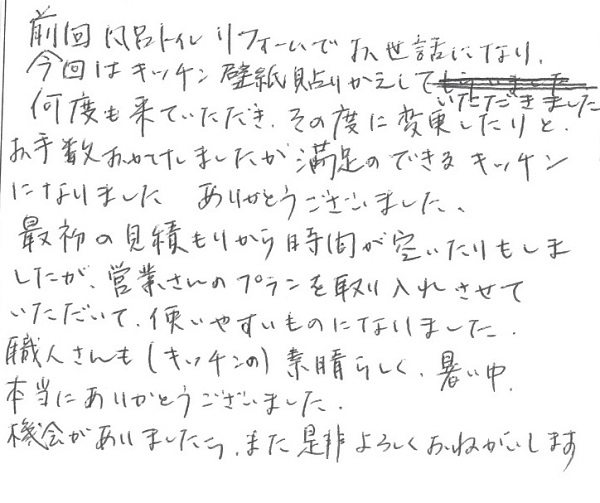 前回風呂トイレリフォームでお世話になり、
今回はキッチン壁紙貼りかえしていただきました
何度も来ていただき、その度に変更したりと、
お手数おかけしましたが満足のできるキッチン
になりました ありがとうございました、
最初の見積もりから時間が空いたりもしま
したが、営業さんのプランを取り入れさせて
いただいて、使いやすいものになりました.
職人さんも(キッチンの)素晴らしく、暑い中、
本当にありがとうございました.
機会がありましたら、また是非よろしくおねがいします